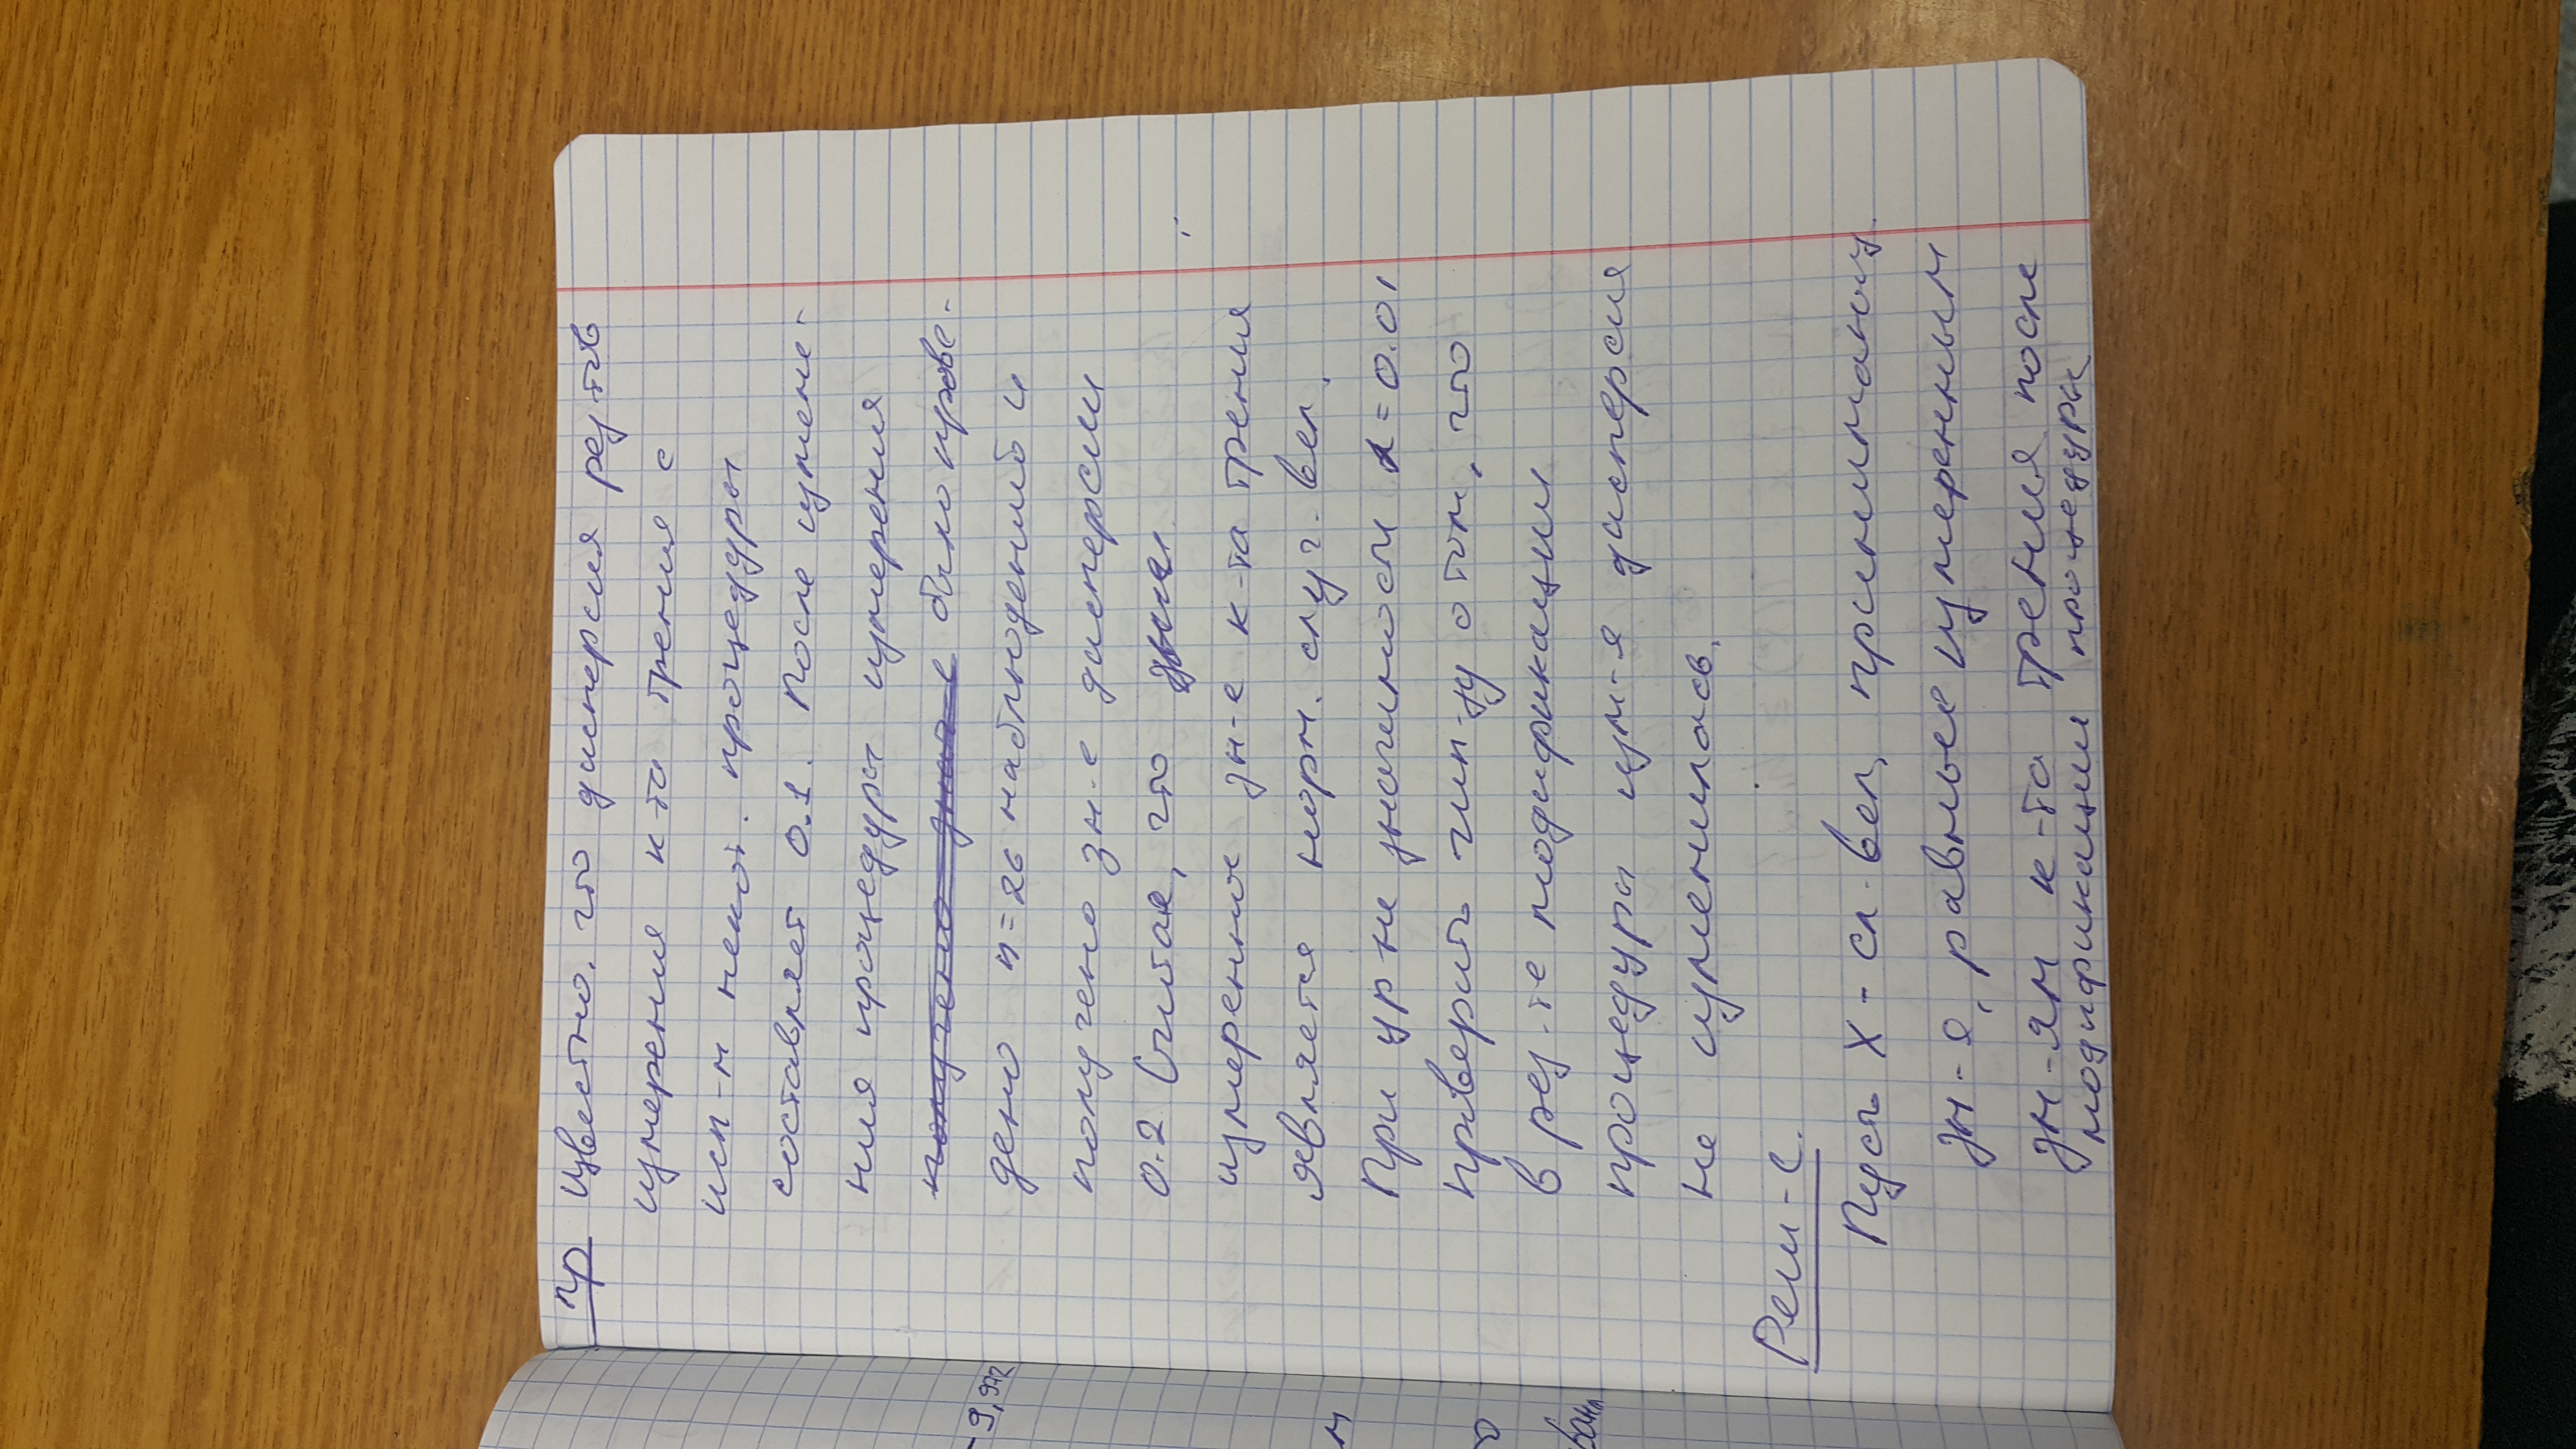 -9,972
Пр Известно, что дисперсия рез-тов
измерения к-та трения с
исп-м некот. процедуры
составляет 0.1. После измене-
ния процедуры измерения
было прове-
дено n=26 наблюдений и
получено зн-е дисперсии
0.2 Считая, что
измеренное зн-е к-та трения
является норм. случ. вел.
При ур-не значимости α=0.01
проверить гип-зу о том, что
в рез-те модификации
процедуры изм-я дисперсия
не изменилась.
Реш-е.
Пусть X-сл. вел, принимающ.
зн-я, равные измеренным
зн-ям к-та трения после
модификации процедуры